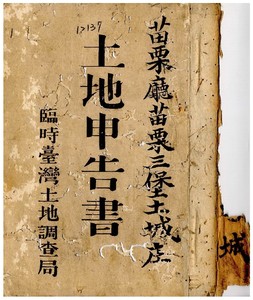 苗栗廳苗栗三堡土城庄
12137
土地申告書
臨時臺灣土地調查局
城